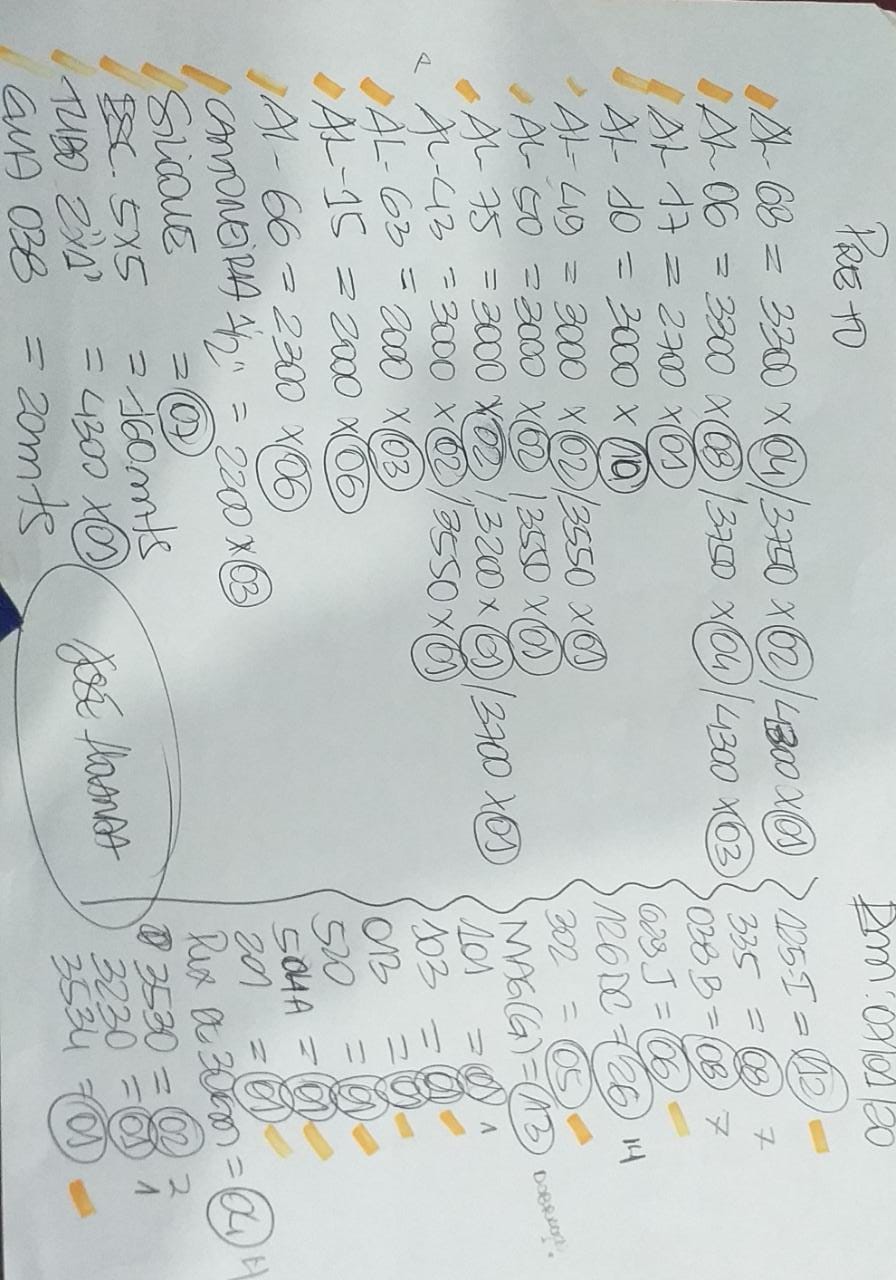 PRETO
AL-68 = 3300 x 04 / 3750 x 02 / 4300 x 01
AL-06 = 3300 x 08 / 3750 x 04 / 4300 x 03
AL-17 = 2700 x 01
AL-10 = 3000 x 10
AL-49 = 3000 x 02 / 3550 x 01
AL-50 = 3000 x 02 / 3550 x 01
AL-75 = 3000 x 02 / 3200 x 01 / 3700 x 01
AL-43 = 3000 x 02 / 3550 x 01
AL-63 = 2000 x 03
AL-15 = 2000 x 06
AL-66 = 2300 x 06
CANTONEIRA 1/2" = 2200 x 03
SILICONE = 07
ESC. 5x5 = 160mts
TUBO 2"x1" = 4300 x 01
GUA 038 = 20mts
José
125I = 12
335 = 08 7
028B = 08 7
623J = 06
126DC = 26 14
302 = 05
MAS(G) = 13
101 = 01 1
103 = 01
013 = 01
520 = 01
504A = 01
201 = 01
= 04 4
3530 = 02 2
3230 = 01 1
3534 = 01